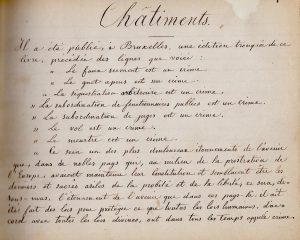 Châtiments.
Il a été publié, à Bruxelles, une édition tronquée de ce
livre, précédée des lignes que voici :
" Le faux serment est un crime.
" Le guet-apens est un crime.
" La séquestration arbitraire est un crime.
" La subornation de fonctionnaires publics est un crime.
" La subordination de juges est un crime.
" Le vol est un crime.
" Le meurtre est un crime.
" Ce sera un des plus douloureux étonnements de l'avenir
que, dans de nobles pays qui, au milieu de la prostration de
l'Europe, avaient maintenu leur constitution et semblaient être les
derniers et sacrés asiles de la probité et de la liberté, ce sera, di-
sons-nous, l'étonnement de l'avenir que dans ces pays-là il ait
été fait des lois pour protéger ce que toutes les lois humaines, d'ac-
cord avec toutes les lois divines, ont dans tous les temps appelé crime.